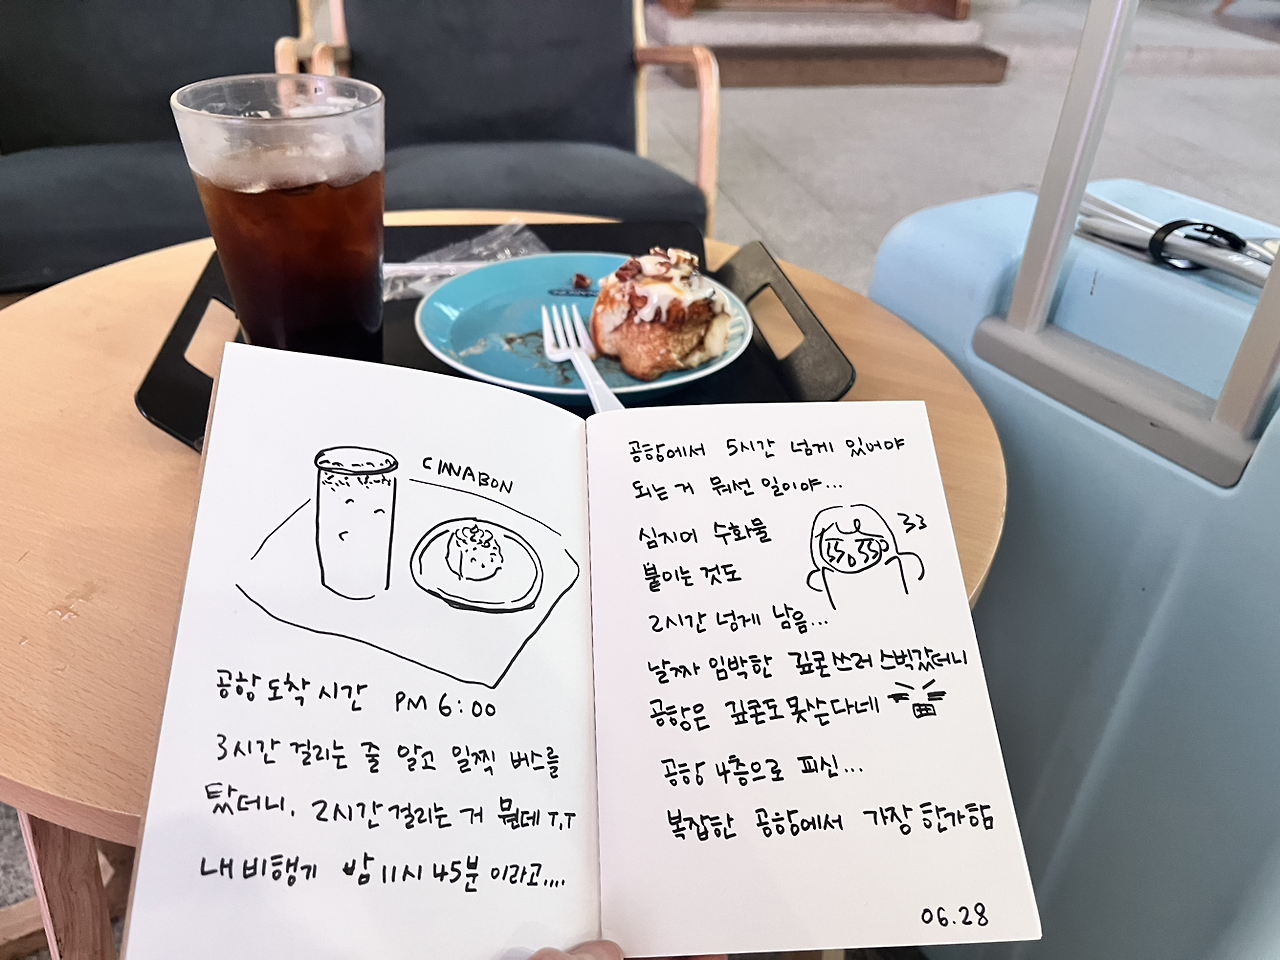 CINNABON
공항 도착 시간 PM 6:00
3시간 걸리는 줄 알고 일찍 버스를
탔더니, 2시간 걸리는 거 뭔데 T.T
내 비행기 밤 11시 45분 이라고....
공항에서 5시간 넘게 있어야
되는 거 뭐선 일이야...
심지어 수화물
붙이는 것도
2시간 넘게 남음...
날짜 임박한 깊콘쓰러 스벅갔더니
공항은 깊콘도 못쓴다네
공항 4층으로 피신...
복잡한 공항에서 가장 한가함
06.28